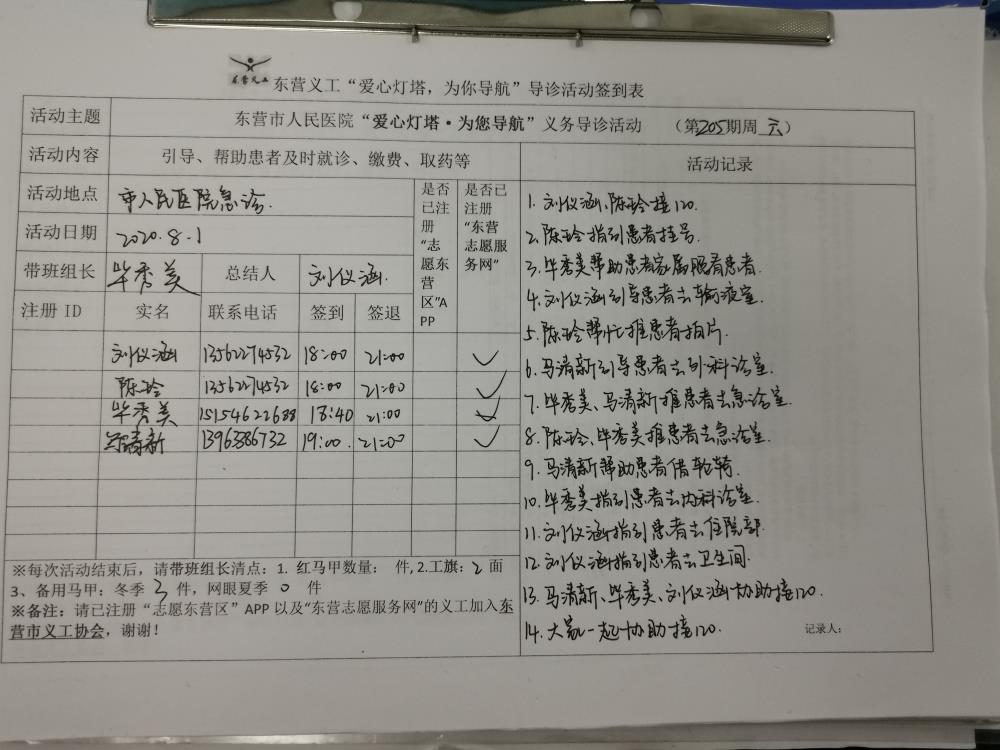 东营义工
东营义工“爱心灯塔，为你导航”导诊活动签到表
活动主题 东营市人民医院“爱心灯塔·为您导航”义务导诊活动 （第205期周六）
活动内容 引导、帮助患者及时就诊、缴费、取药等 活动记录
活动地点 市人民医院急诊.
活动日期 2020.8.1
带班组长 毕秀美 总结人 刘仪涵.
是否已注册“志愿东营区”APP
是否已注册“东营志愿服务网”
注册 ID 实名 联系电话 签到 签退
刘仪涵 13562274532 18:00 21:00 ✓
陈玲 13562274532 18:00 21:00 ✓
毕秀美 15154622688 18:40 21:00 ✓
马清新 1396386732 19:00. 21:00 ✓
※每次活动结束后，请带班组长清点：1. 红马甲数量： 件, 2.工旗：2 面
3、备用马甲：冬季 3 件，网眼夏季 0 件
※备注：请已注册“志愿东营区”APP 以及“东营志愿服务网”的义工加入东
营市义工协会，谢谢！
1. 刘仪涵、陈玲接120.
2. 陈玲指引患者挂号.
3. 毕秀美帮助患者家属照看患者.
4. 刘仪涵引导患者去输液室.
5. 陈玲帮忙推患者拍片.
6. 马清新引导患者去外科诊室.
7. 毕秀美、马清新推患者去急诊室.
8. 陈玲、毕秀美推患者去急诊室.
9. 马清新帮助患者借轮椅.
10. 毕秀美指引患者去内科诊室.
11. 刘仪涵指引患者去住院部.
12. 刘仪涵指引患者去卫生间.
13. 马清新、毕秀美、刘仪涵协助接120.
14. 大家一起协助接120.
记录人：